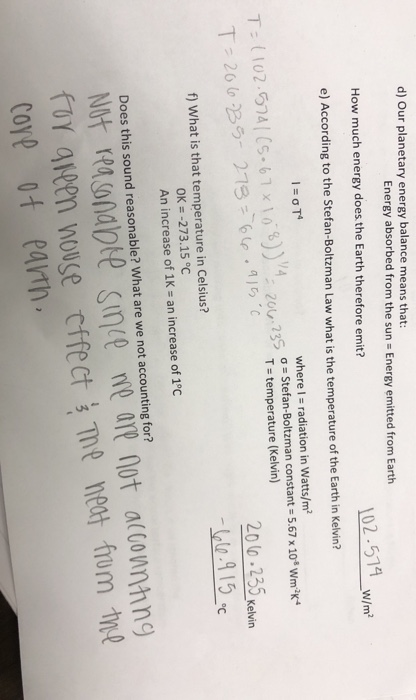 d) Our planetary energy balance means that:
Energy absorbed from the sun = Energy emitted from Earth
How much energy does the Earth therefore emit?
102.574 W/m²
e) According to the Stefan-Boltzman Law what is the temperature of the Earth in Kelvin?
I = σT⁴
where I = radiation in Watts/m²
σ = Stefan-Boltzman constant = 5.67 x 10⁻⁸ Wm⁻²K⁻⁴
T = temperature (Kelvin)
T = (102.574/(5.67 x 10⁻⁸))^1/4 = 206.235
T = 206.235 - 273 = -66.915°C
206.235 Kelvin
-66.915 °C
f) What is that temperature in Celsius?
0K = -273.15 °C
An increase of 1K = an increase of 1°C
Does this sound reasonable? What are we not accounting for?
Not reasonable since we are not accounting
for green house effect & the heat from the
core of earth.